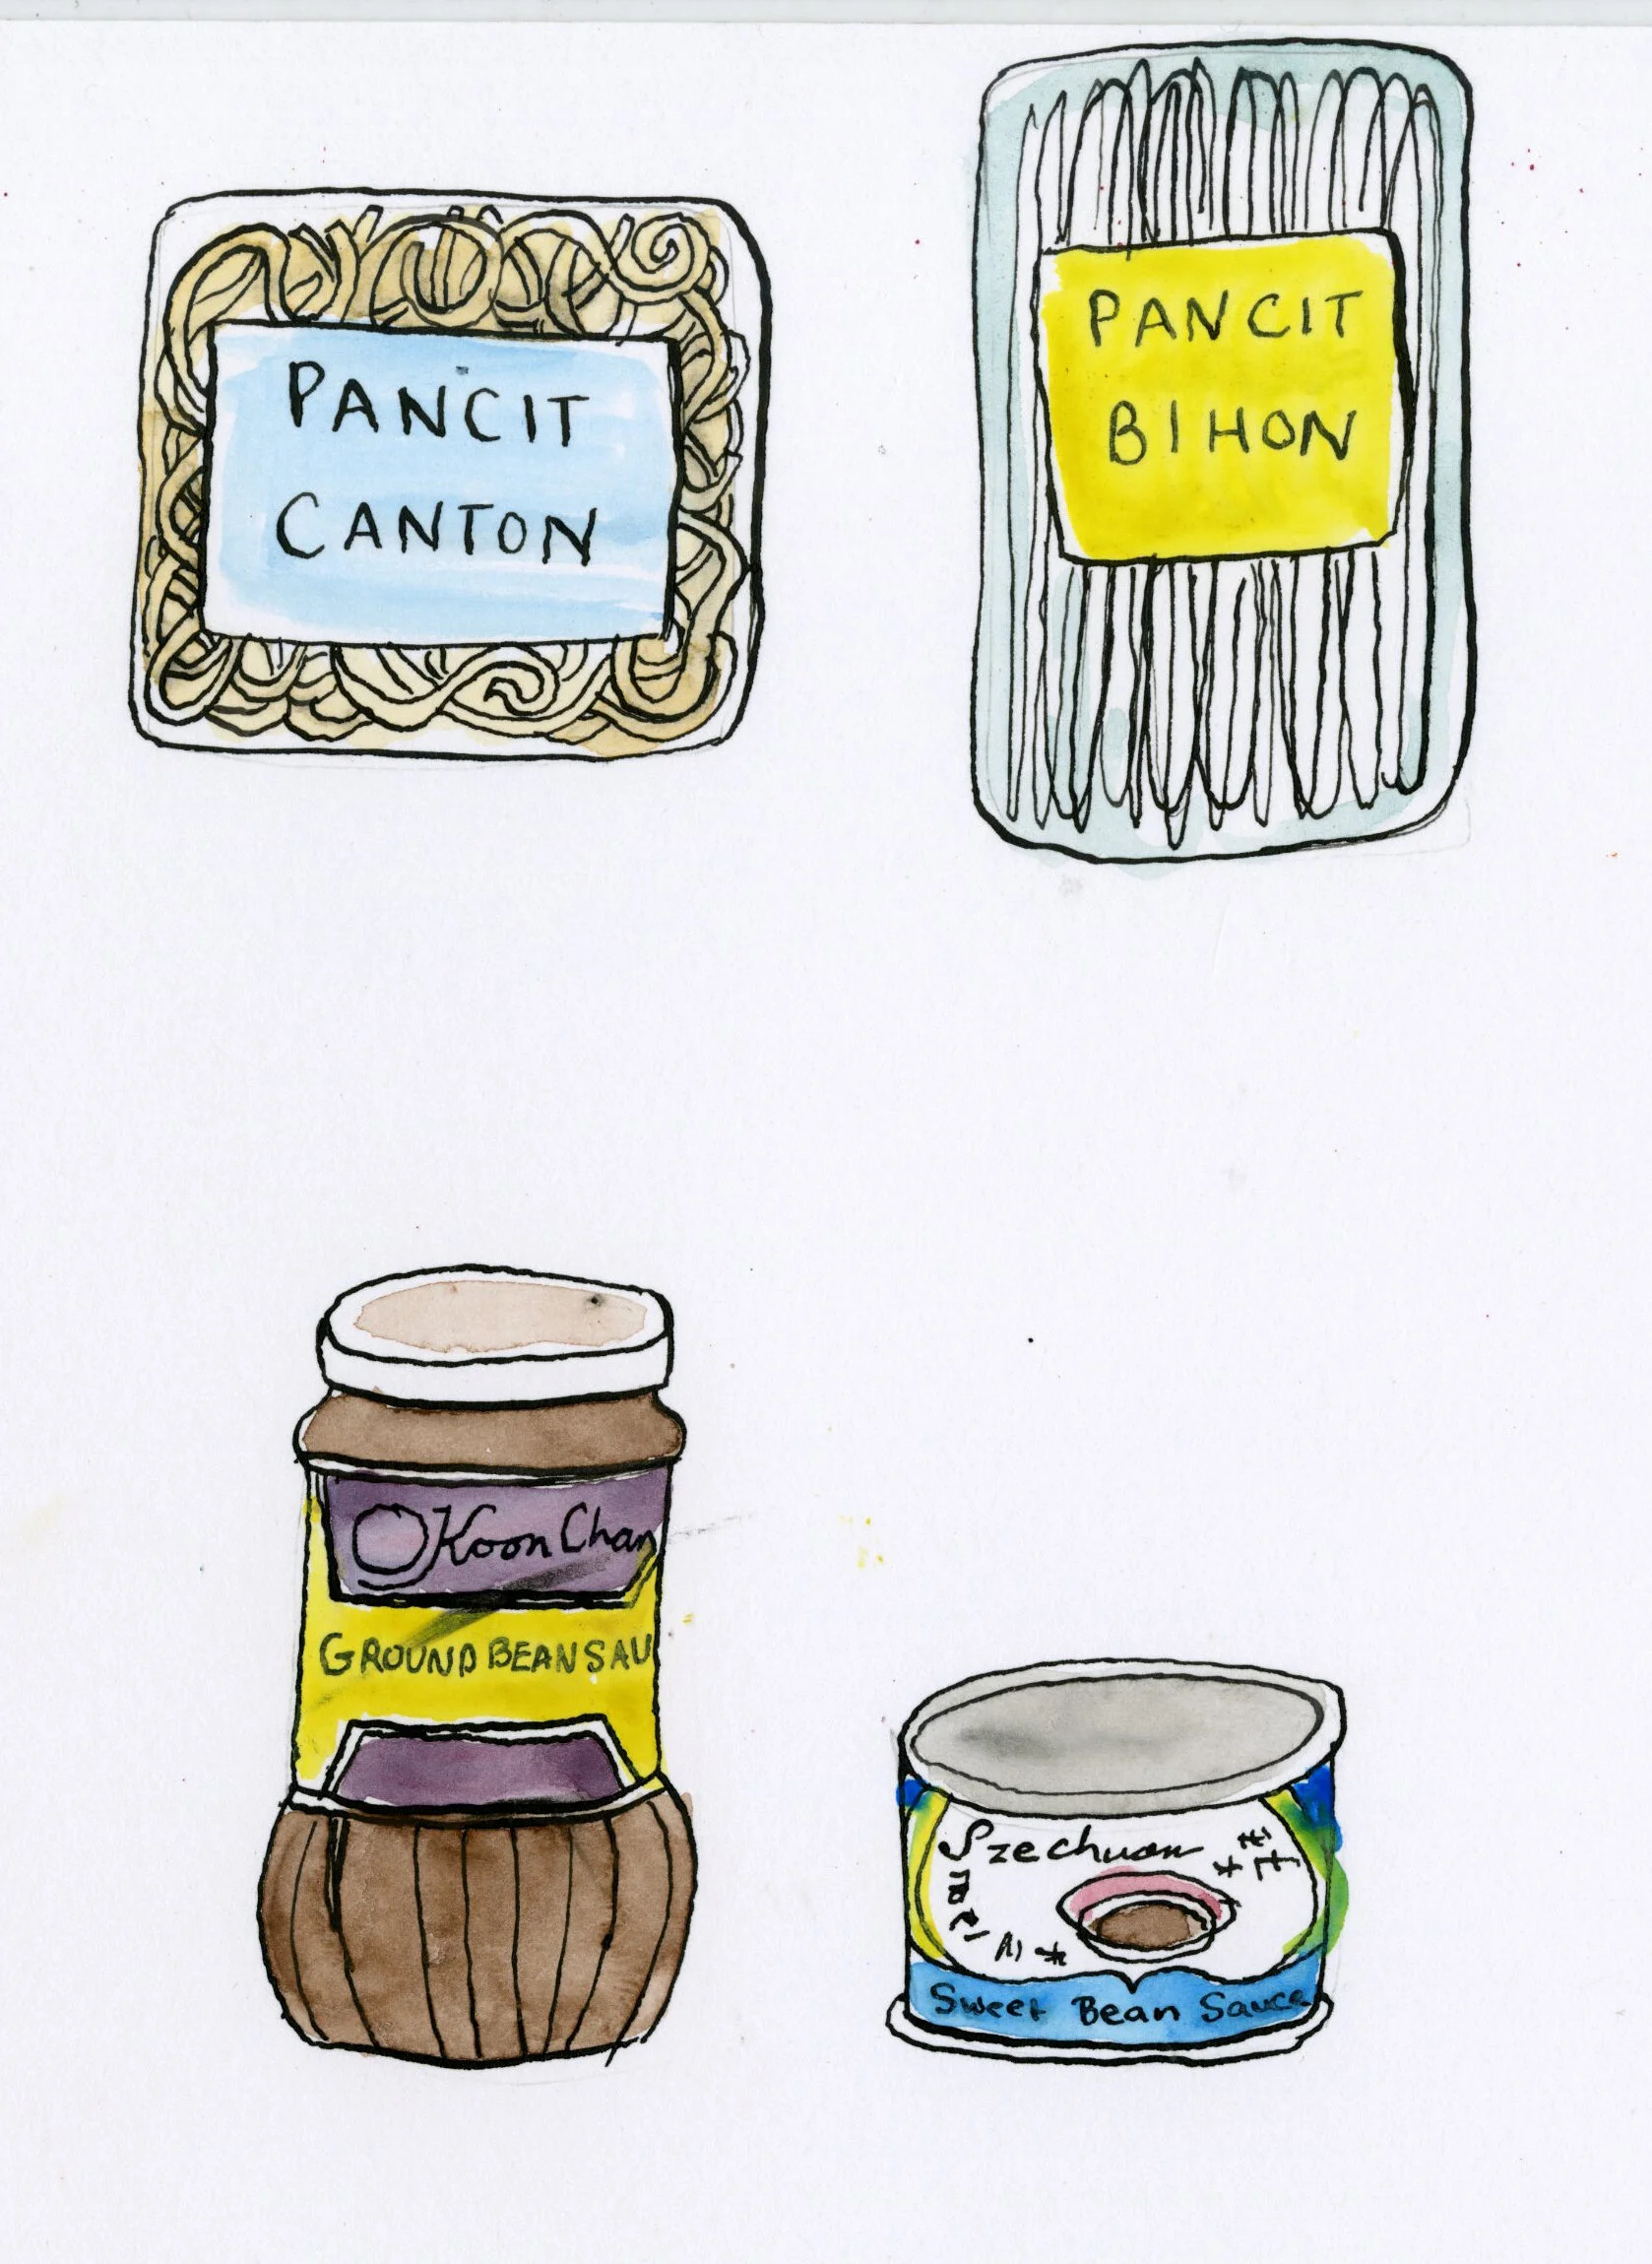 PANCIT
CANTON
PANCIT
BIHON
Koon Chan
GROUND BEAN SAU
Szechuan
Sweet Bean Sauce